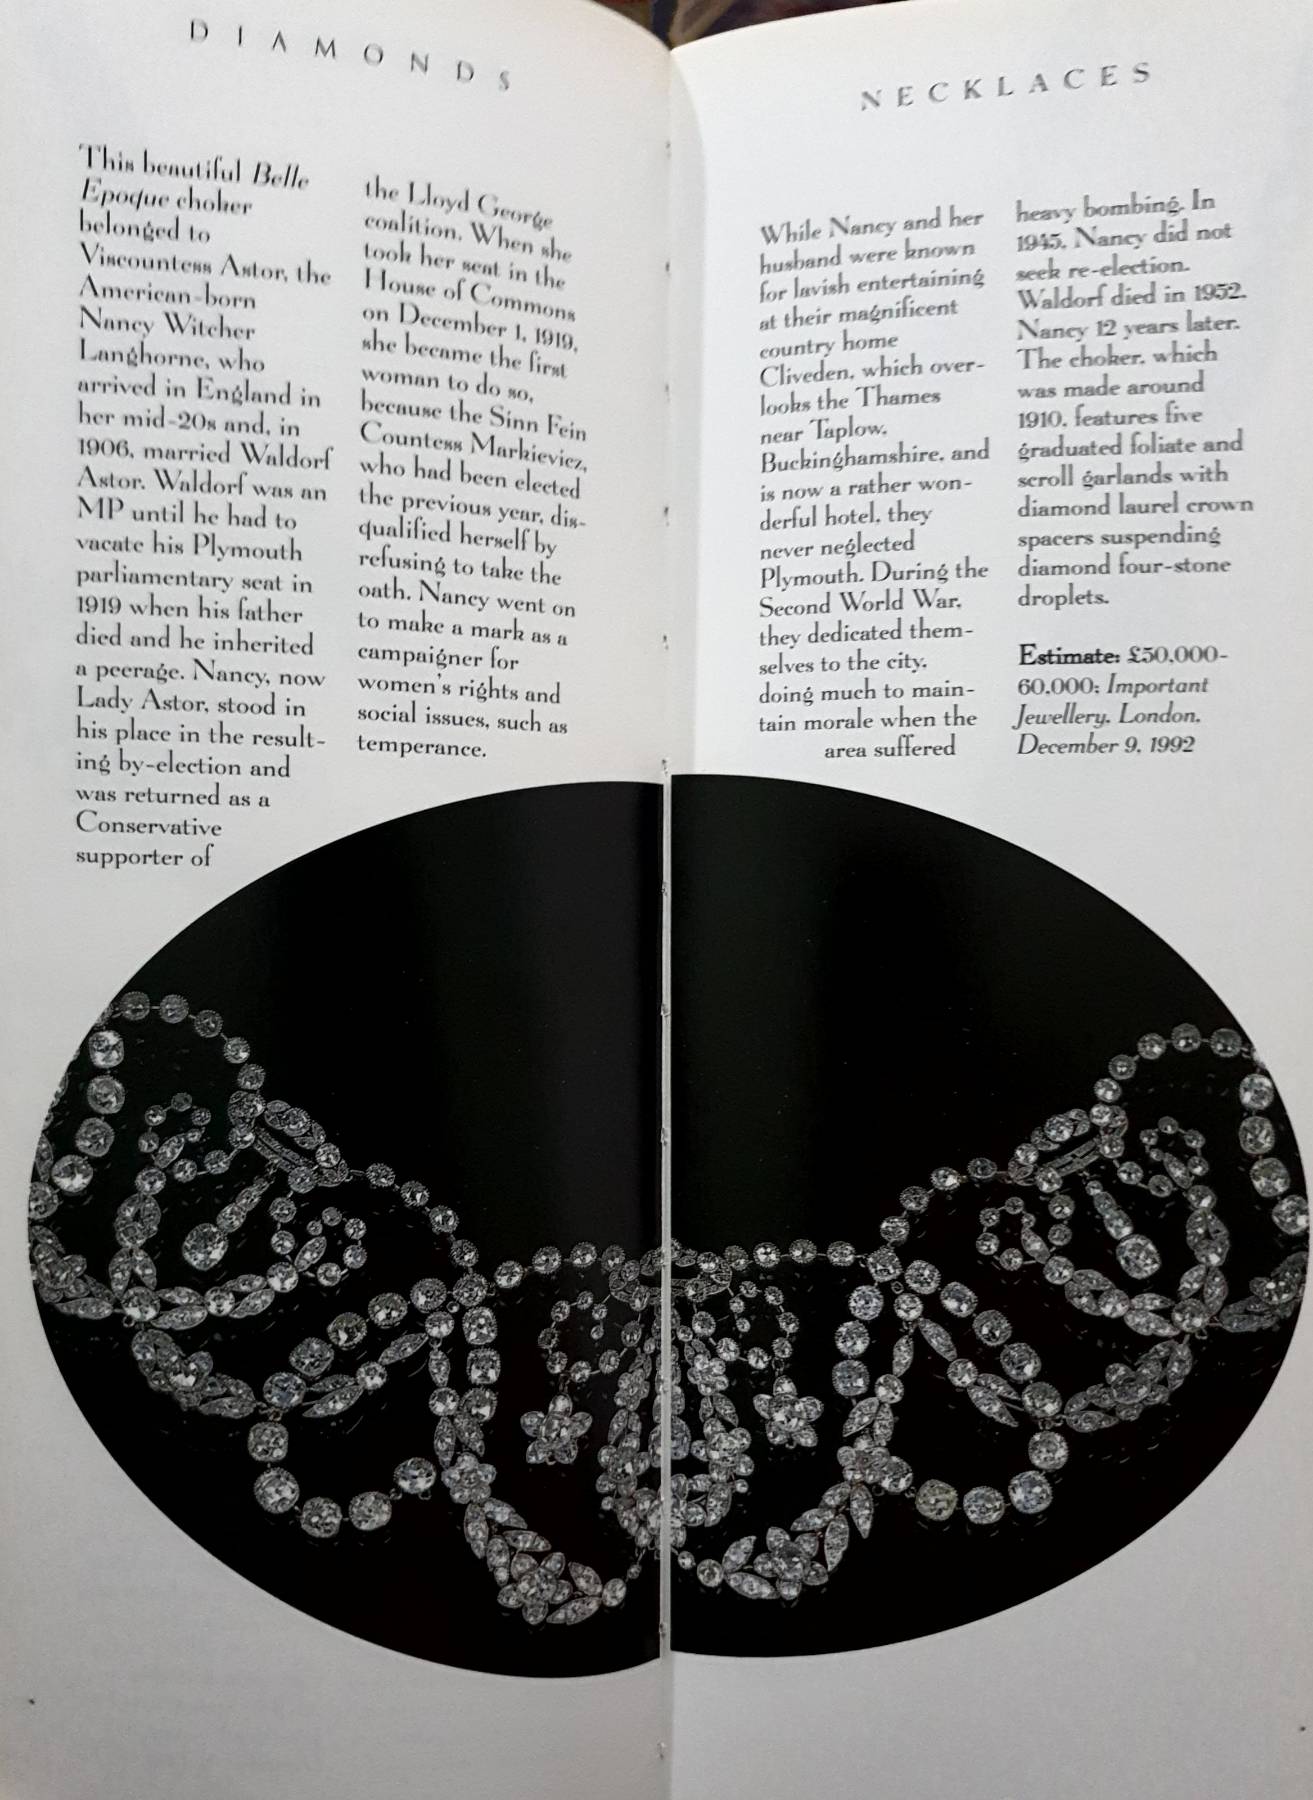 DIAMONDS
This beautiful Belle
Epoque choker
belonged to
Viscountess Astor, the
American-born
Nancy Witcher
Langhorne, who
arrived in England in
her mid-20s and, in
1906, married Waldorf
Astor. Waldorf was an
MP until he had to
vacate his Plymouth
parliamentary seat in
1919 when his father
died and he inherited
a peerage. Nancy, now
Lady Astor, stood in
his place in the result-
ing by-election and
was returned as a
Conservative
supporter of
the Lloyd George
coalition. When she
took her seat in the
House of Commons
on December 1, 1919,
she became the first
woman to do so,
because the Sinn Fein
Countess Markievicz,
who had been elected
the previous year, dis-
qualified herself by
refusing to take the
oath. Nancy went on
to make a mark as a
campaigner for
women's rights and
social issues, such as
temperance.
NECKLACES
While Nancy and her
husband were known
for lavish entertaining
at their magnificent
country home
Cliveden, which over-
looks the Thames
near Taplow,
Buckinghamshire, and
is now a rather won-
derful hotel, they
never neglected
Plymouth. During the
Second World War,
they dedicated them-
selves to the city,
doing much to main-
tain morale when the
area suffered
heavy bombing. In
1945, Nancy did not
seek re-election.
Waldorf died in 1952,
Nancy 12 years later.
The choker, which
was made around
1910, features five
graduated foliate and
scroll garlands with
diamond laurel crown
spacers suspending
diamond four-stone
droplets.
Estimate: £50,000-
60,000; Important
Jewellery, London,
December 9, 1992